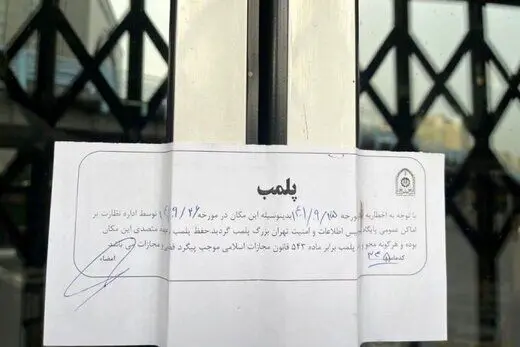 پلمب
با توجه به اخطاریه مورخه ۱۴۰۱/۹/۲۵ بدینوسیله این مکان در مورخه ۱۴۰۱/۹/۲۶ توسط اداره نظارت بر
اماکن عمومی پایگاه پلیس اطلاعات و امنیت تهران بزرگ پلمب گردید.حفظ پلمب بعهد متصدی این مکان
بوده و هرگونه محو و پلمب برابر ماده ۵۴۳ قانون مجازات اسلامی موجب پیگرد و مجازات می باشد.
کدمامور امضاء